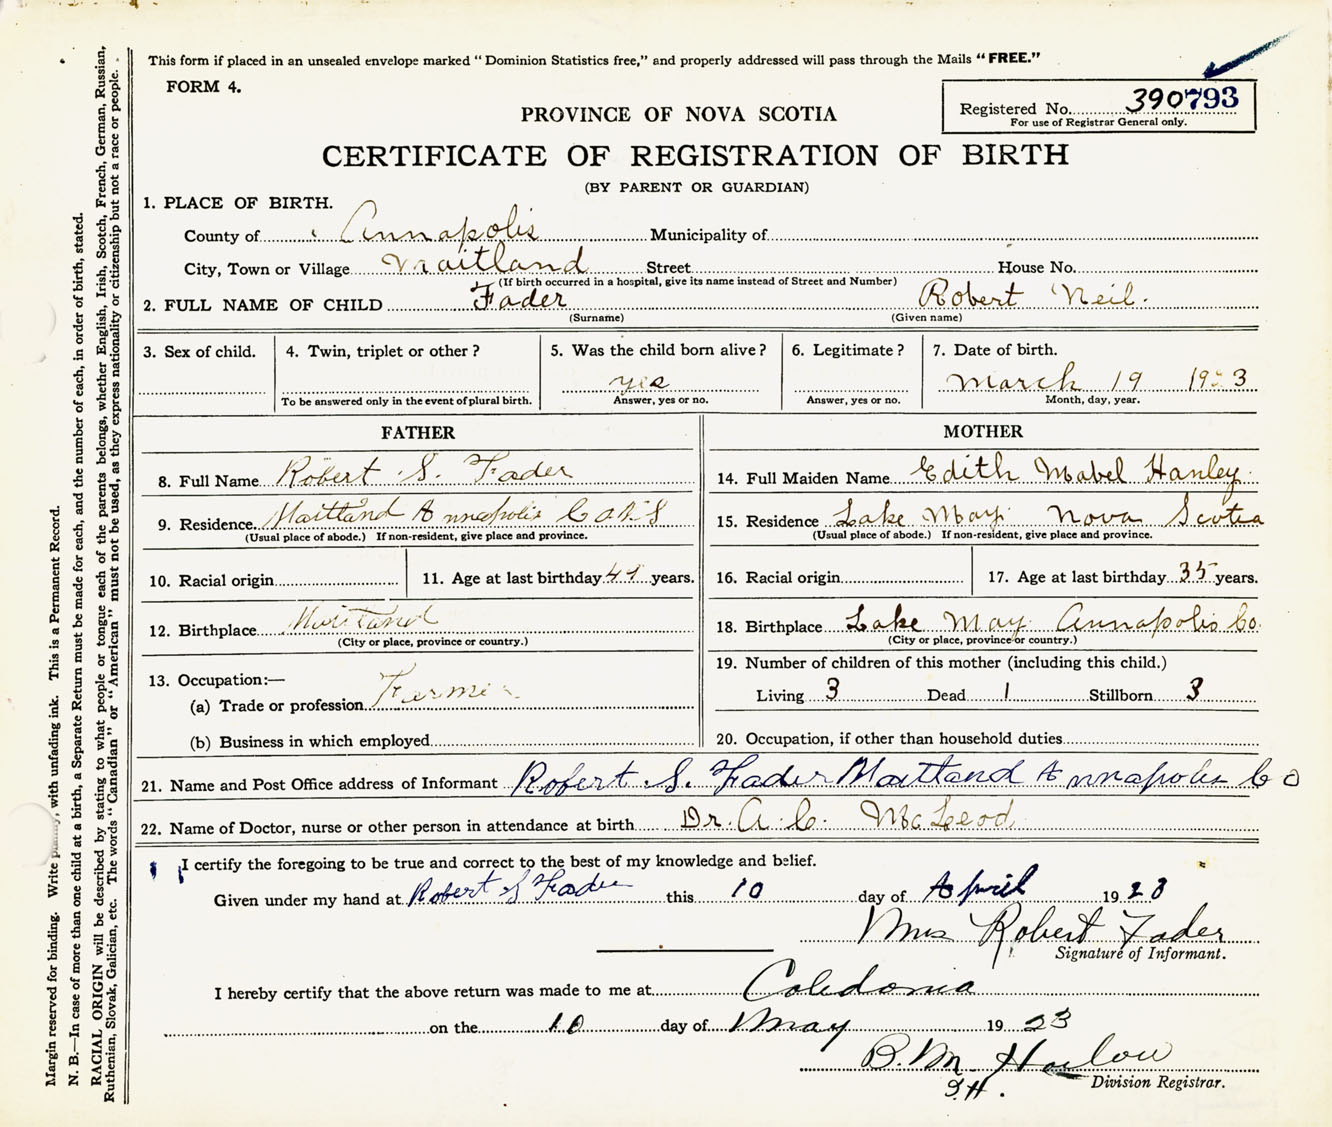 This form if placed in an unsealed envelope marked "Dominion Statistics free," and properly addressed will pass through the Mails "FREE."
FORM 4.
Registered No. 390793
For use of Registrar General only.
PROVINCE OF NOVA SCOTIA
CERTIFICATE OF REGISTRATION OF BIRTH
(BY PARENT OR GUARDIAN)
1. PLACE OF BIRTH.
County of Annapolis Municipality of
City, Town or Village Maitland Street House No.
(If birth occurred in a hospital, give its name instead of Street and Number)
2. FULL NAME OF CHILD Fader Robert Neil.
(Surname) (Given name)
3. Sex of child. 4. Twin, triplet or other? 5. Was the child born alive? 6. Legitimate? 7. Date of birth.
yes March 19 1923
To be answered only in the event of plural birth. Answer, yes or no. Answer, yes or no. Month, day, year.
FATHER
8. Full Name Robert S. Fader
9. Residence Maitland Annapolis Co N S
(Usual place of abode.) If non-resident, give place and province.
10. Racial origin 11. Age at last birthday years.
12. Birthplace Maitland
(City or place, province or country.)
13. Occupation:—
(a) Trade or profession Farmer
(b) Business in which employed
MOTHER
14. Full Maiden Name Edith Mabel Hanley.
15. Residence Lake May. Nova Scotia
(Usual place of abode.) If non-resident, give place and province.
16. Racial origin 17. Age at last birthday 35 years.
18. Birthplace Lake May Annapolis Co.
(City or place, province or country.)
19. Number of children of this mother (including this child.)
Living 3 Dead 1 Stillborn 3
20. Occupation, if other than household duties
21. Name and Post Office address of Informant Robert S. Fader Maitland Annapolis Co
22. Name of Doctor, nurse or other person in attendance at birth Dr. A. C. McLeod
I certify the foregoing to be true and correct to the best of my knowledge and belief.
Given under my hand at Robert S Fader this 10 day of April 1923
Mrs Robert Fader
Signature of Informant.
I hereby certify that the above return was made to me at Caledonia
on the 10 day of May 1923
B. M. Harlow
Division Registrar.
Margin reserved for binding. Write plainly, with unfading ink. This is a Permanent Record.
N. B.—In case of more than one child at a birth, a Separate Return must be made for each, and the number of each, in order of birth, stated.
RACIAL ORIGIN will be described by stating to what people or tongue each of the parents belongs, whether English, Irish, Scotch, French, German, Russian,
Ruthenian, Slovak, Galician, etc. The words "Canadian" or "American" must not be used, as they express nationality or citizenship but not a race or people.